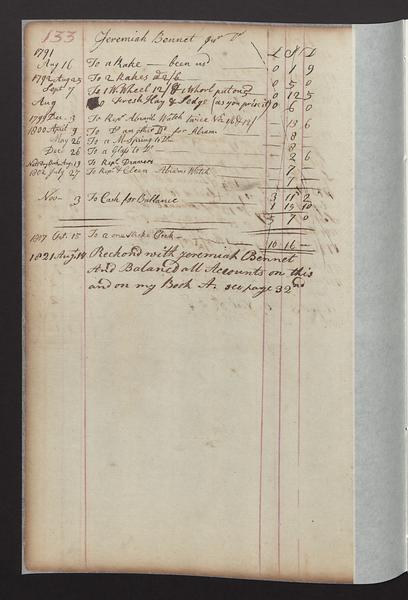 133 Jeremiah Bennet Jur Dr
£ S D
1791
Aug 16 To a Rake — been us'd 0 1 9
1792 Aug 25 To 2 Rakes @ 2/6 0 5 0
Sept 7 To 1 W. Wheel 12/ & 1 Whorl put on 0 12 5
Aug To Fresh Hay & Sedge (as you prise it) 0 6 0
1799 Dec. 3 To Repg Abram's Watch twice 13 6
1800 April 9 To Do another Do for Abram 8
May 26 To a M. Spring to Do 8
Dec 26 To a Glass to Do 2 6
Aug. 19 To Repg Drawers 7
1802 July 27 To Repg & Clean Abrams Watch 7
3 11 2
Nov 3 To Cash for Ballance 1 15 10
5 7 0
1807 Oct. 15 To a one
10 16
1821 Augt 14 Reckond with Jeremiah Bennet
And Balanced all Accounts on this
and on my Book A. see page 32nd